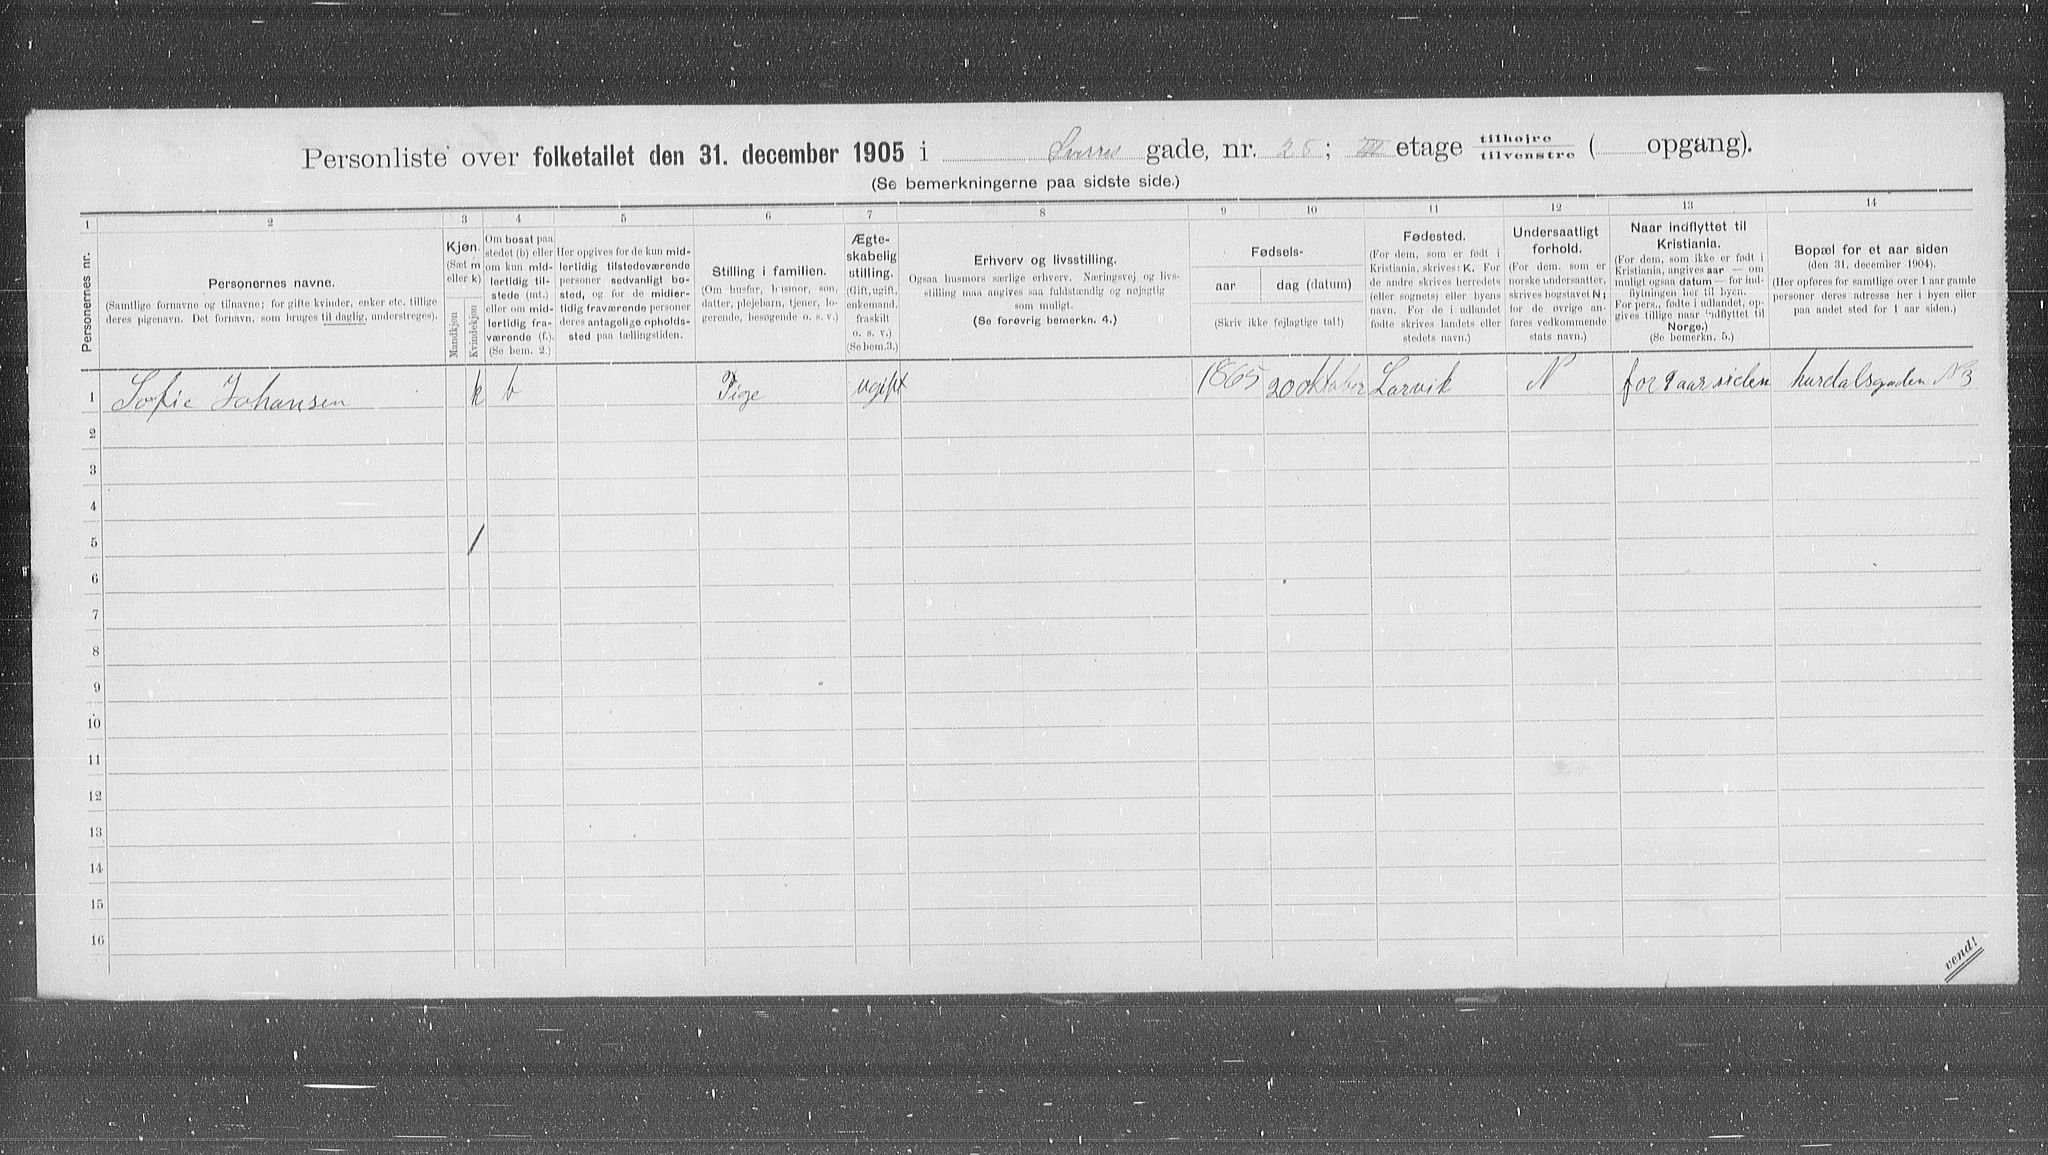 Personliste over folketallet den 31. december 1905 i gade, nr. 25; III etage tilhøjre tilvenstre ( opgang).
(Se bemerkningerne paa sidste side.)
1 2 3 4 5 6 7 8 9 10 11 12 13 14
Personernes nr.
Personernes navne.
(Samtlige fornavne og tilnavne; for gifte kvinder, enker etc. tillige
deres pigenavn. Det fornavn, som bruges til daglig, understreges).
Kjøn.
(Sæt m
eller k)
Mandkjøn
Kvindekjøn
Om bosat paa
stedet (b) eller
om kun mid-
lertidig til-
stede (mt.)
eller om mid-
lertidig fra-
værende (f.).
(Se bem. 2.)
Her opgives for de kun mid-
lertidig tilstedeværende
personer sedvanligt bo-
sted, og for de midler-
tidig fraværende personer
deres antagelige opholds-
sted paa tællingstiden.
Stilling i familien.
(Om husfar, husmor, søn,
datter, plejebarn, tjener, lo-
gerende, besøgende o. s. v.)
Ægte-
skabelig
stilling.
(Gift, ugift,
enkemand,
fraskilt
o. s. v.)
(Se bem. 3.)
Erhverv og livsstilling.
Ogsaa husmors særlige erhverv. Næringsvej og livs-
stilling maa angives saa fuldstændig og nøjagtig
som muligt.
(Se forøvrig bemerkn. 4.)
Fødsels-
aar
dag (datum)
(Skriv ikke fejlagtige tal!)
Fødested.
(For dem, som er født i
Kristiania, skrives: K. For
de andre skrives herredets
(eller sognets) eller byens
navn. For de i udlandet
fødte skrives landets eller
stedets navn.)
Undersaatligt
forhold.
(For dem, som er
norske undersaatter,
skrives bogstavet N;
for de øvrige an-
føres vedkommende
stats navn.)
Naar indflyttet til
Kristiania.
(For dem, som ikke er født i
Kristiania, angives aar — om
muligt ogsaa datum — for ind-
flytningen her til byen.
For pers., fødte i udlandet, op-
gives tillige naar indflyttet til
Norge.)
(Se bemerkn. 5.)
Bopæl for et aar siden
(den 31. december 1904).
(Her opføres for samtlige over 1 aar gamle
personer deres adresse her i byen eller
paa andet sted for 1 aar siden.)
1 Sofie Johansen k b Pige ugift 1865 20 oktober Larvik N for 9 aar siden hurdalsgaden N 3
2
3
4
5 /
6
7
8
9
10
11
12
13
14
15
16
vend!